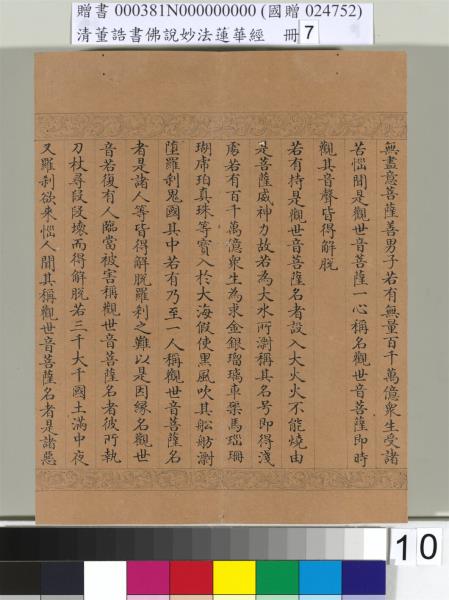 贈書 000381N000000000 (國贈 024752)
清董誥書佛說妙法蓮華經 冊 7
無盡意菩薩善男子若有無量百千萬億眾生受諸
苦惱聞是觀世音菩薩一心稱名觀世音菩薩即時
觀其音聲皆得解脫
若有持是觀世音菩薩名者設入大火火不能燒由
是菩薩威神力故若為大水所漂稱其名号即得淺
處若有百千萬億眾生為求金銀瑠璃車璖馬瑙珊
瑚虎珀真珠等寶入於大海假使黑風吹其船舫漂
墮羅刹鬼國其中若有乃至一人稱觀世音菩薩名
者是諸人等皆得解脫羅刹之難以是因緣名觀世
音若復有人臨當被害稱觀世音菩薩名者彼所執
刀杖尋段段壞而得解脫若三千大千國土滿中夜
又羅刹欲來惱人聞其稱觀世音菩薩名者是諸惡
10